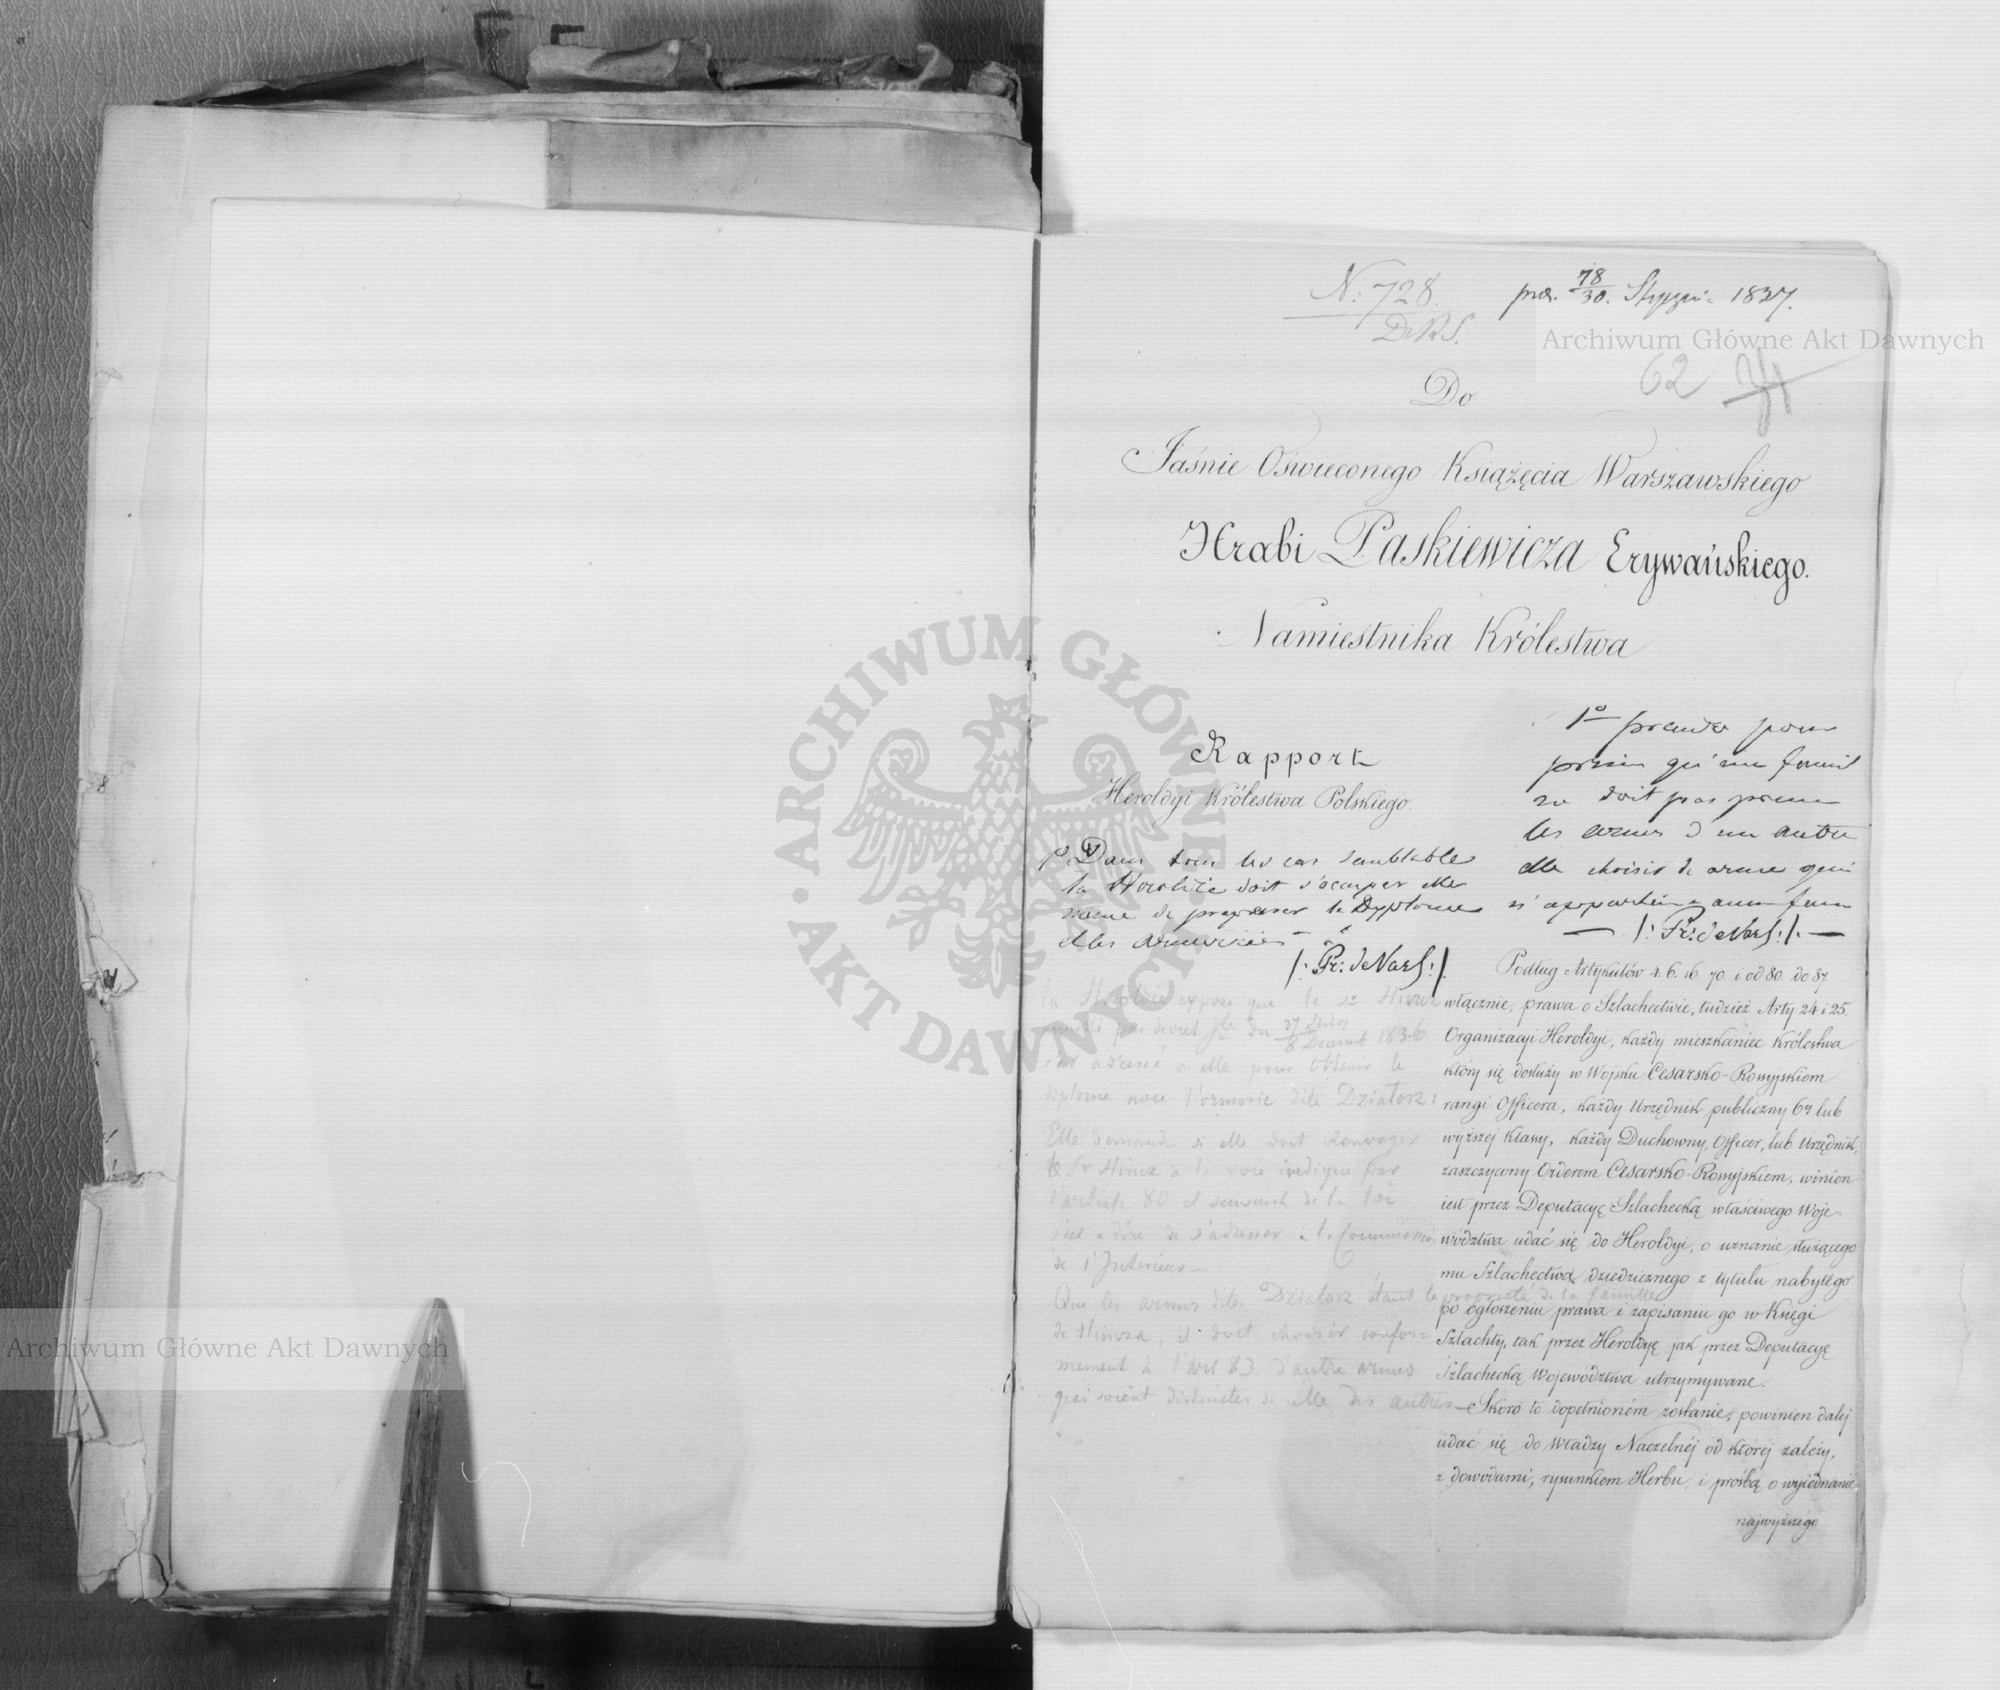 N: 728.
DRS.
pra. 18/30. Stycznia 1837.
62
Do
Jaśnie Oświeconego Książęcia Warszawskiego
Hrabi Paskiewicza Erywańskiego.
Namiestnika Królestwa
Rapport
Heroldyi Królestwa Polskiego.
1º Dans tous les cas semblable
la Heroldie doit s'occuper elle
meme de proposer le Dyplome
et les armoiries
/: Pr: de Vars :/
1º prendre pour
qu'une famil
ne doit pas prenne
les armes d'une autre
elle choisit de arme qui
n'appartien a aucun fam
— /: Pr: de Vars :/. —
la Heroldie expose que le Sr Hincz
anobli par decret du 27/8 Decemb 1836
s'est adressé a elle pour obtenir le
diplome avec l'armorie dite Działosz:
Elle demande si elle doit renvoyer
le Sr Hincz à la voie indiquée par
l'article 80 et suivant de la loi
c'est a dire de s'adresser a la Commission
de l'Interieur —
Que les armes dites Działosz étant la propriété de la famille
de Hincza, il doit choisir confor=
mement à l'art 83. d'autre armes
qui soient distinctes de celle des autres —
Podług Artykułów 4. 6. 16. 70. i od 80. do 87.
włącznie, prawa o Szlachectwie, tudzież Arty. 24 i 25.
Organizacyi Heroldyi, każdy mieszkaniec Królestwa
który się dosłuży w Wojsku Cesarsko-Rossyjskiem
rangi Officera, każdy Urzędnik publiczny 6ej lub
wyższej klassy, każdy Duchowny, Officer, lub Urzędnik,
zaszczycony Orderem Cesarsko-Rossyjskiem, winien
iest przez Deputacyę Szlachecką właściwego Woje-
wództwa udać się do Heroldyi, o uznanie służącego
mu Szlachectwa dziedzicznego z tytułu nabytego
po ogłoszeniu prawa i zapisaniu go w Księgi
Szlachty, tak przez Heroldyę jak przez Deputacyę
Szlachecką Województwa utrzymywane.
Skoro to dopełnioném zostanie, powinien dalej
udać się do Władzy Naczelnéj od któréj zależy,
z dowodami, rysunkiem Herbu, i prośbą o wyiednanie
najwyższego
Archiwum Główne Akt Dawnych
Archiwum Główne Akt Dawnych
ARCHIWUM GŁÓWNE · AKT DAWNYCH ·